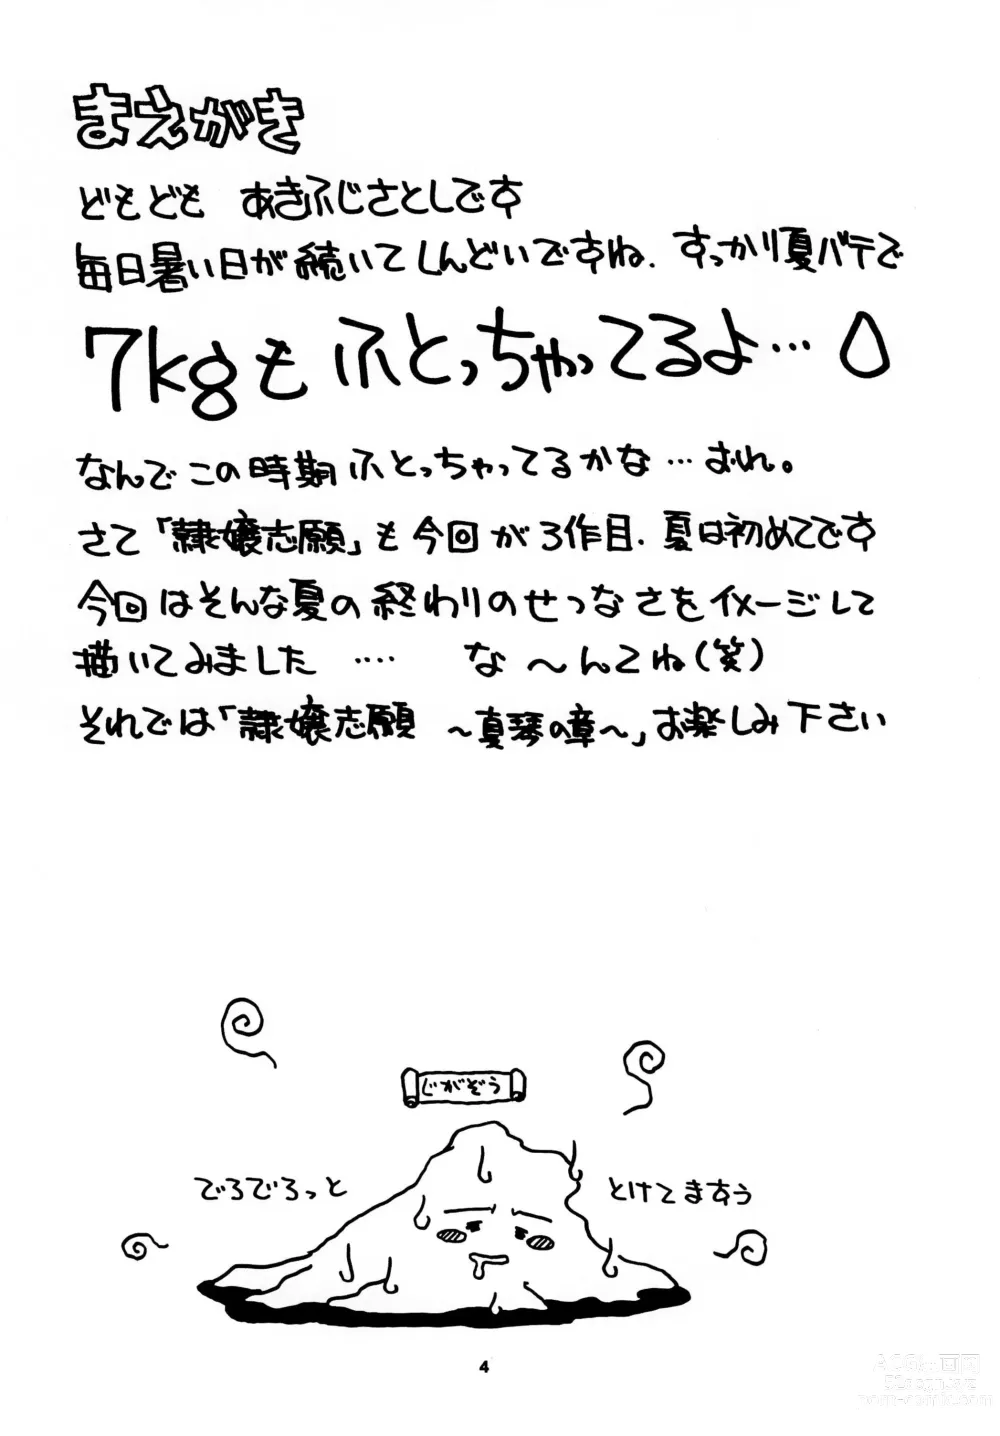 まえがき
どもども あきふじさとしです
毎日暑い日が続いてしんどいですね、すっかり夏バテで
7kgも ふとっちゃってるよ…
なんでこの時期ふとっちゃってるかな…おれ。
さて「隷嬢志願」も今回が3作目、夏は初めてです
今回はそんな夏の終わりのせつなさをイメージして
描いてみました ‥‥ な〜んてね(笑)
それでは「隷嬢志願 〜真琴の章〜」お楽しみ下さい
じがぞう
でろでろっと
とけてますぅ
4